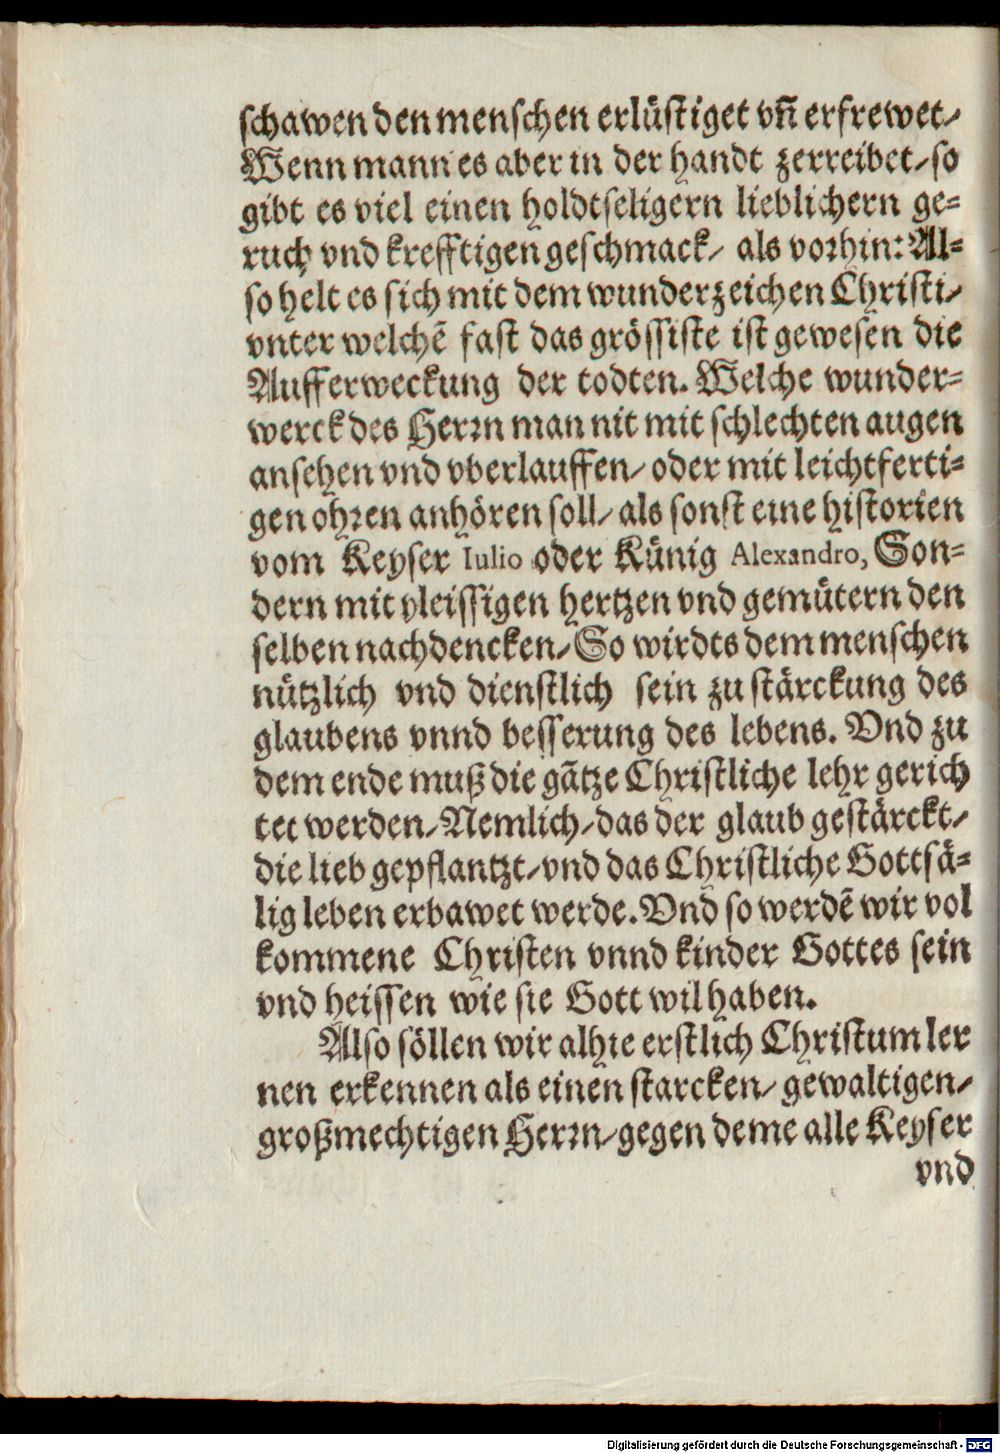 schawen den menschen erlüstiget vñ erfrewet/
Wenn mann es aber in der handt zerreibet/ so
gibt es viel einen holdtseligern lieblichern ge=
ruch vnd krefftigen geschmack/ als vorhin: Al=
so helt es sich mit dem wunderzeichen Christi/
vnter welchẽ fast das grössiste ist gewesen die
Aufferweckung der todten. Welche wunder=
werck des Herrn man nit mit schlechten augen
ansehen vnd vberlauffen/ oder mit leichtferti=
gen ohren anhören soll/ als sonst eine historien
vom Keyser Iulio oder Künig Alexandro, Son=
dern mit vleissigen hertzen vnd gemütern den
selben nachdencken/ So wirdts dem menschen
nützlich vnd dienstlich sein zu stärckung des
glaubens vnnd besserung des lebens. Vnd zu
dem ende muß die gãtze Christliche lehr gerich
tet werden/ Nemlich/ das der glaub gestärckt/
die lieb gepflantzt/ vnd das Christliche Gottsä=
lig leben erbawet werde. Vnd so werdẽ wir vol
kommene Christen vnnd kinder Gottes sein
vnd heissen wie sie Gott wil haben.
Also söllen wir alhie erstlich Christum ler
nen erkennen als einen starcken/ gewaltigen/
großmechtigen Herrn/ gegen deme alle Keyser
vnd
Digitalisierung gefördert durch die Deutsche Forschungsgemeinschaft - DFG